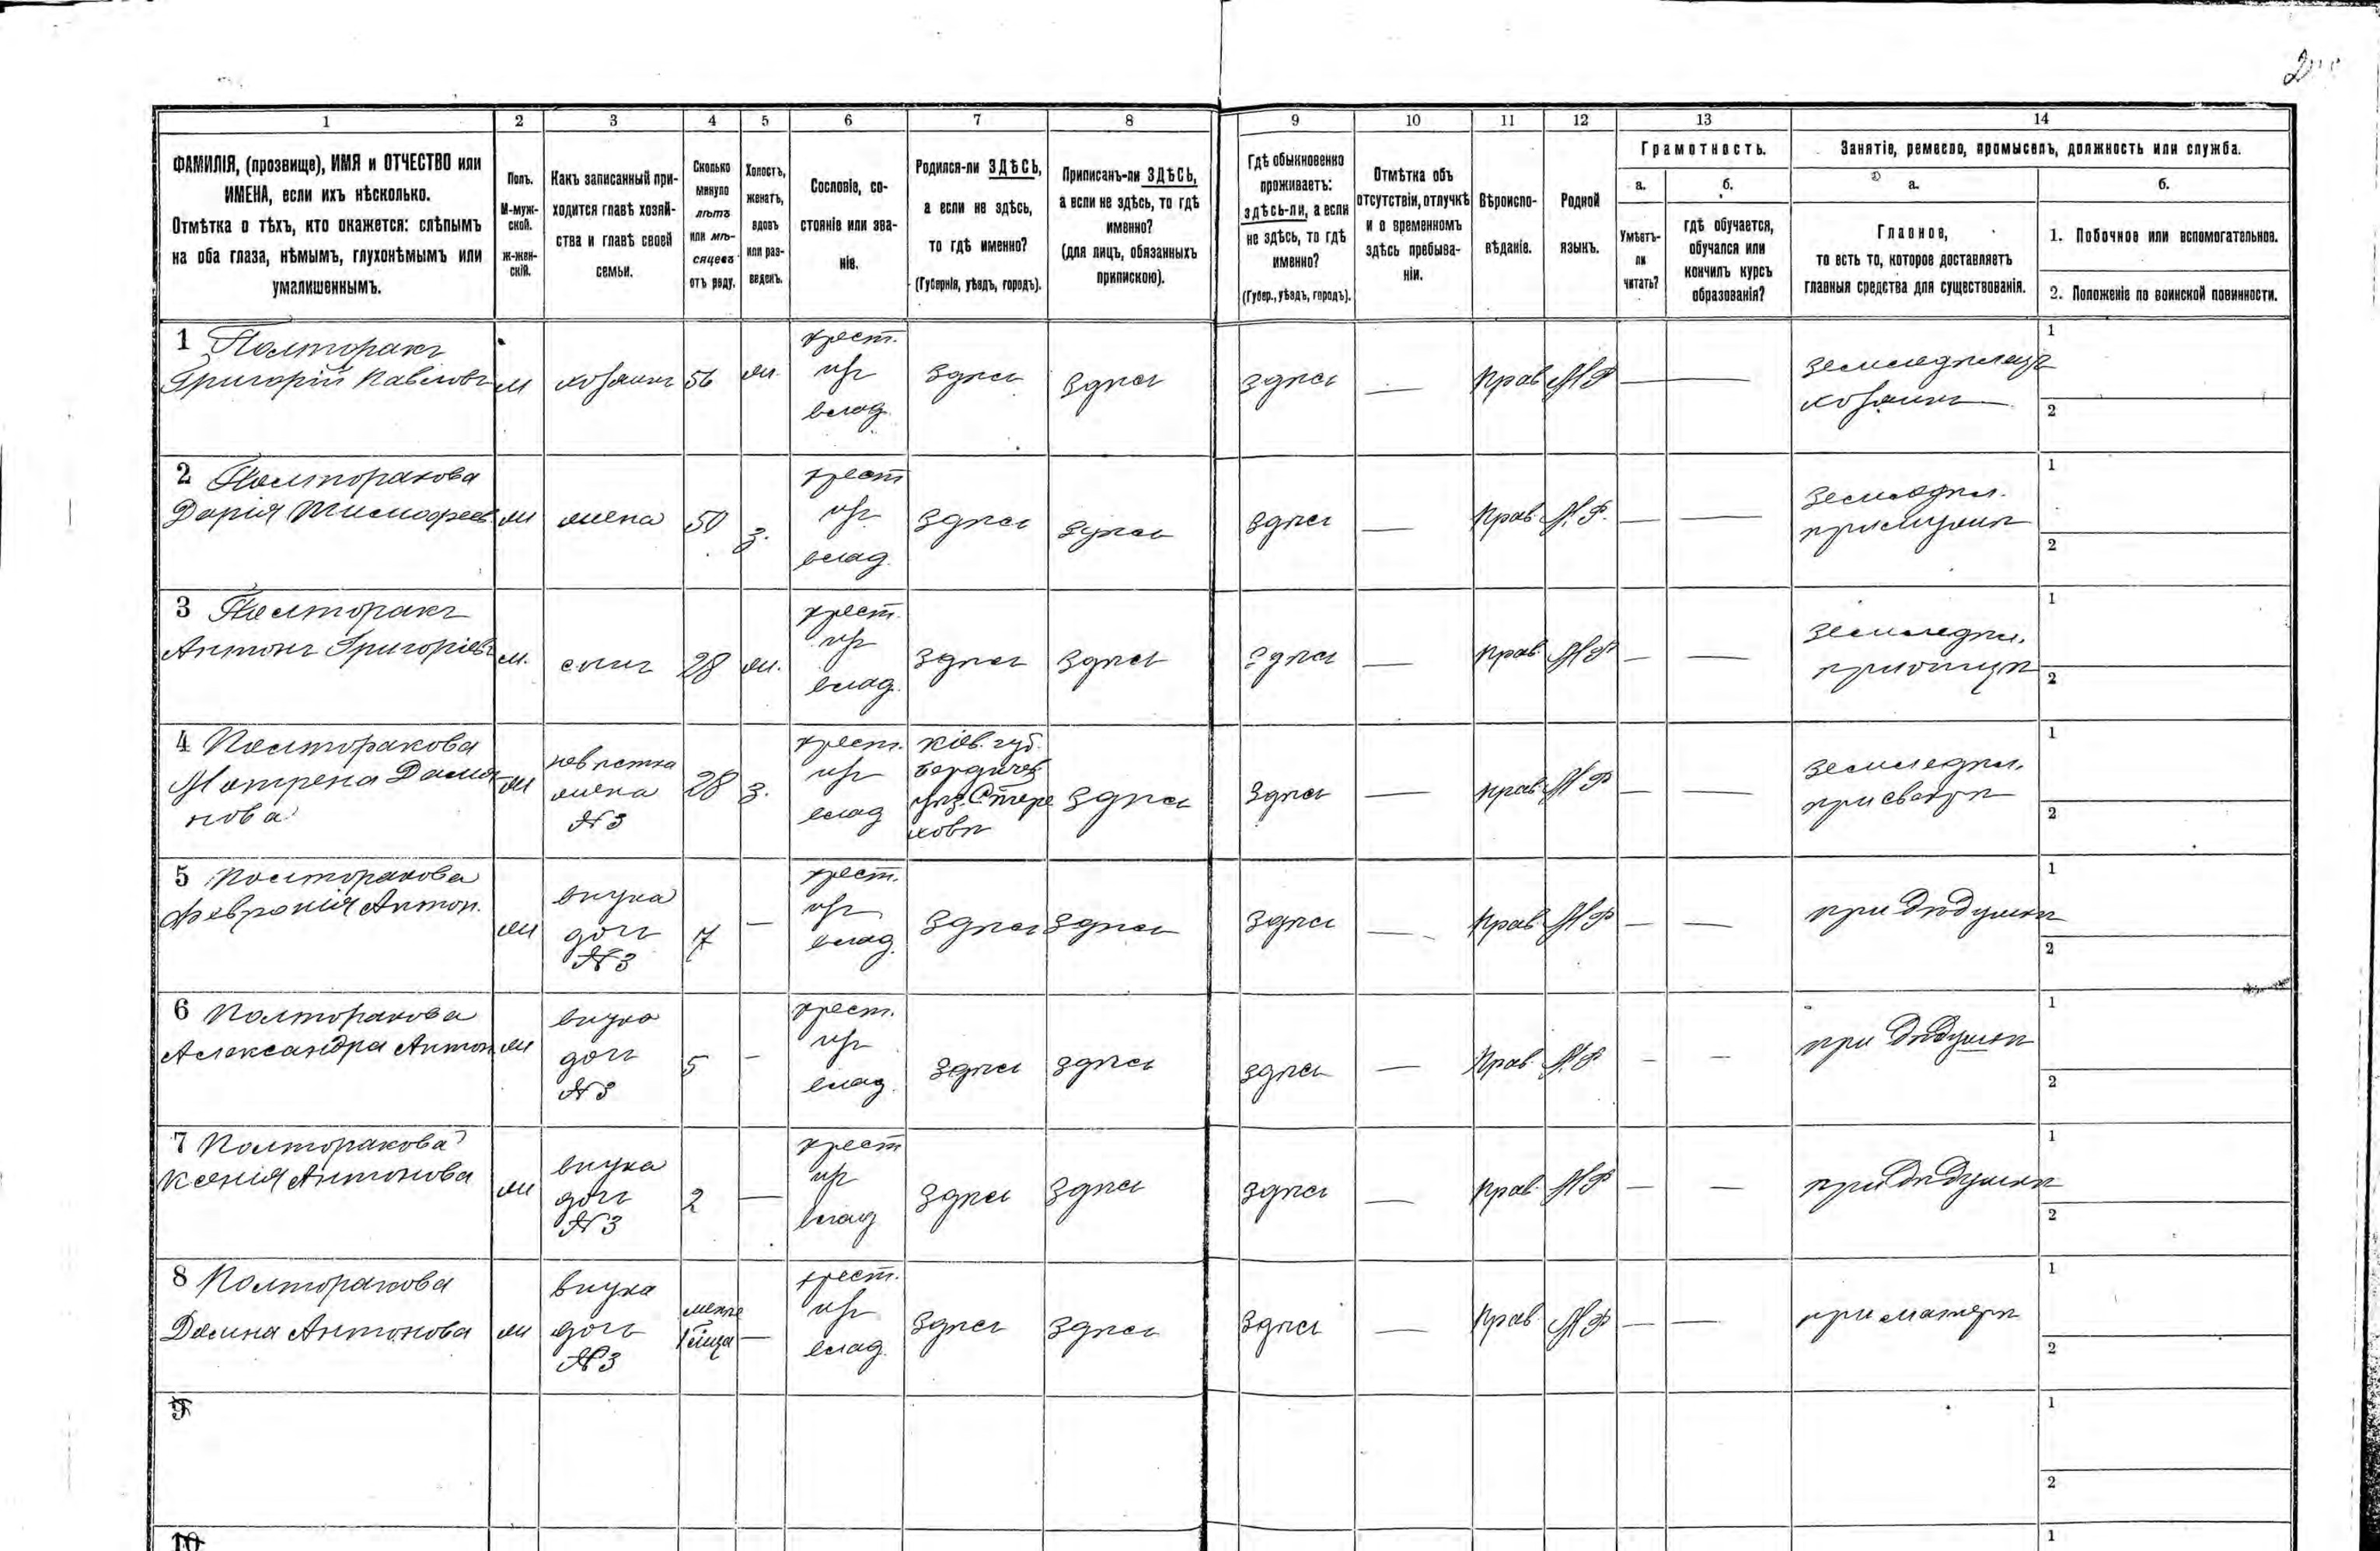 1
2
3
4
5
6
7
8
9
10
11
12
13
14
ФАМИЛІЯ, (прозвище), ИМЯ и ОТЧЕСТВО или
ИМЕНА, если ихъ нѣсколько.
Отмѣтка о тѣхъ, кто окажется: слѣпымъ
на оба глаза, нѣмымъ, глухонѣмымъ или
умалишеннымъ.
Полъ.
М-муж-
ской.
ж-жен-
скій.
Какъ записанный при-
ходится главѣ хозяй-
ства и главѣ своей
семьи.
Сколько
минуло
лѣтъ
или мѣ-
сяцевъ
отъ роду.
Холостъ,
женатъ,
вдовъ
или раз-
веденъ.
Сословіе, со-
стояніе или зва-
ніе.
Родился-ли ЗДѢСЬ,
а если не здѣсь,
то гдѣ именно?
(Губернія, уѣздъ, городъ).
Приписанъ-ли ЗДѢСЬ,
а если не здѣсь, то гдѣ
именно?
(для лицъ, обязанныхъ
припискою).
Гдѣ обыкновенно
проживаетъ:
здѣсь-ли, а если
не здѣсь, то гдѣ
именно?
(Губер., уѣздъ, городъ).
Отмѣтка объ
отсутствіи, отлучкѣ
и о временномъ
здѣсь пребыва-
ніи.
Вѣроиспо-
вѣданіе.
Родной
языкъ.
Грамотность.
а.
Умѣетъ-
ли
читать?
б.
гдѣ обучается,
обучался или
кончилъ курсъ
образованія?
Занятіе, ремесло, промыселъ, должность или служба.
а.
Главное,
то есть то, которое доставляетъ
главныя средства для существованія.
б.
1. Побочное или вспомогательное.
2. Положеніе по воинской повинности.
1 Полторакъ
Григорій Павловъ
м
хозяинъ
56
ж.
крест.
из
влад.
здѣсь
здѣсь
здѣсь
—
Прав
М Р
—
—
земледѣлецъ
хозяинъ
1
2
2 Полторакова
Дарія Тимофеев.
ж
жена
50
з.
крест
из
влад.
здѣсь
здѣсь
здѣсь
—
Прав.
М. Р.
—
—
земледѣл.
при мужѣ
1
2
3 Полторакъ
Антонъ Григоріевъ
м.
сынъ
28
ж.
крест.
из
влад.
здѣсь
здѣсь
здѣсь
—
Прав.
М Р
—
—
земледѣл.
при отцѣ
1
2
4 Полторакова
Матрена Дамья-
нова
ж
невѣстка
жена
№3
28
з.
крест.
из
влад
Кіев. губ.
Бердичев.
уѣз.
здѣсь
здѣсь
—
Прав.
М Р
—
—
земледѣл.
при свекрѣ
1
2
5 Полторакова
Февронія Антон.
ж
внука
доч
№3
7
—
крест.
из
влад.
здѣсь
здѣсь
здѣсь
—
Прав.
М Р
—
—
при дѣдушкѣ
1
2
6 Полторакова
Александра Антон
ж
внука
доч
№3
5
—
крест.
из
влад.
здѣсь
здѣсь
здѣсь
—
Прав.
М. Р
—
—
при дѣдушкѣ
1
2
7 Полторакова
Ксенія Антонова
ж
внука
доч
№3
2
—
крест
из
влад
здѣсь
здѣсь
здѣсь
—
Прав.
М Р
—
—
при дѣдушкѣ
1
2
8 Полторакова
Домна Антонова
ж
внука
доч
№3
менѣе
—
крест.
из
влад.
здѣсь
здѣсь
здѣсь
—
Прав.
М Р
—
—
при матери
1
2
9
1
2
10
1